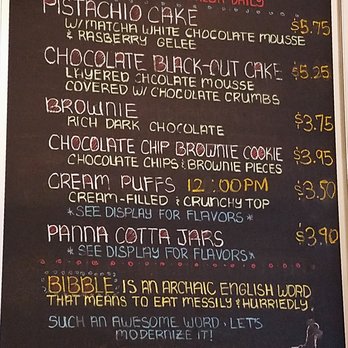 DAILY
PISTACHIO CAKE $5.75
W/MATCHA WHITE CHOCOLATE MOUSSE
& RASBERRY GELEE
CHOCOLATE BLACK-OUT CAKE $5.25
LAYERED CHOLATE MOUSSE
COVERED W/ CHOCOLATE CRUMBS
BROWNIE $3.75
RICH DARK CHOCOLATE
CHOCOLATE CHIP BROWNIE COOKIE $3.95
CHOCOLATE CHIPS & BROWNIE PIECES
CREAM PUFFS 12:00PM $3.50
CREAM-FILLED & CRUNCHY TOP
*SEE DISPLAY FOR FLAVORS*
PANNA COTTA JARS $3.90
*SEE DISPLAY FOR FLAVORS*
BIBBLE: IS AN ARCHAIC ENGLISH WORD
THAT MEANS TO EAT MESSILY & HURRIEDLY.
SUCH AN AWESOME WORD. LET'S
MODERNIZE IT!